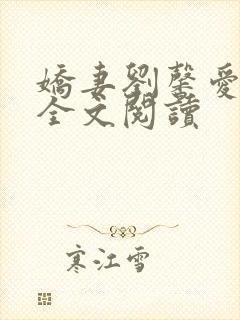 嬌妻劉馨愛
全文閱讀
寒江雪